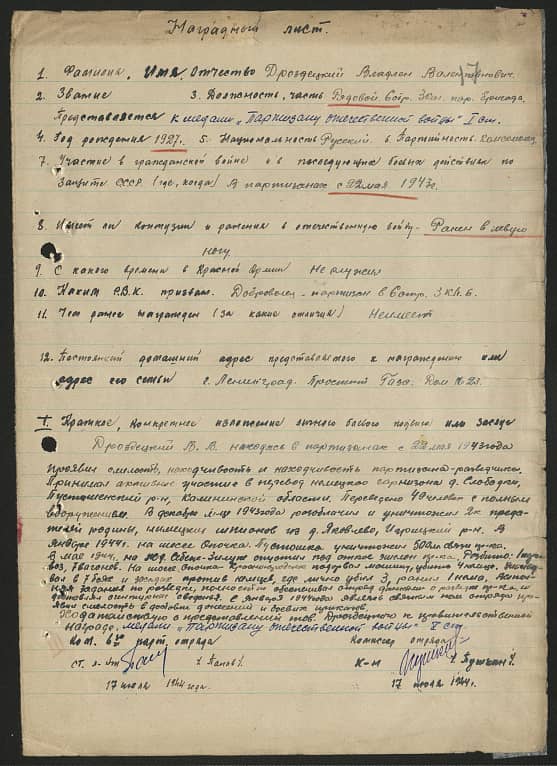 Наградной лист.
1. Фамилия, Имя Отчество Дроздецкий Владлен Валентинович.
2. Звание 3. Должность, часть Рядовой, 6 отр. 3 Кал. пар. бригада,
Представляется к медали „Партизану отечественной войны" I ст.
4. Год рождения 1927г. 5. Национальность Русский. 6 Партийность комсомолец
7. Участие в гражданской войне и в последующих боевых действиях по
защите СССР (где, когда) В партизанах с 22 мая 1943г.
8. Имеет ли контузии и ранения в отечественную войну - Ранен в левую
ногу
9. С какого времени в Красной Армии Не служил
10. Каким Р.В.К. призван. Доброволец - партизан в 6 отр. 3 К.П.Б.
11. Чем ранее награжден (за какие отличия) Не имеет
12. Постоянный домашний адрес представляемого к награждению или
адрес его семьи г. Ленинград. Проспект Газа. Дом №23.
I. Краткое, конкретное изложение личного боевого подвига или заслуг
Дроздецкий В. В. находясь в партизанах с 22 мая 1943 года
проявил смелость, находчивость и находчивость партизана-разведчика.
Принимал активные участие в перевод немецкого гарнизона д. Слободка,
Пустошенский р-н, Калининской области. Переведено 40 человек с полным
вооружением. В декабре м-це 1943 года разоблачил и уничтожил 2х преда-
телей родины, немецких шпионов из д. Яковлево, Идрицкий р-н. В
январе 1944г. на шоссе Опочка-Пустошка уничтожил 500 м связи пр-ка.
В мае 1944г. на ж.д. Себеж-Зилупе спустил под откос эшелон пр-ка. Разбито: 1 паро-
воз, 7 вагонов. На шоссе Опочка-Красногородское подорвал машину, убито 4 немца.
вал в 7 боях и засадах против немцев, где лично убил 3, ранил 1 немца,
задания по разведке, полностью обеспечивал отряд данными о
С января 1944 года являясь связным ком. отряда про-
явил смелость в доставке донесений и боевых приказов.
Ходатайствую о представлении тов. Дроздецкого к правительственной
награде, медали „Партизану отечественной войны" I ст
Ком. 6го парт. отряда Комиссар отряда
ст. л-нт / Панов /. к-н / Пушкин /.
17 июля 1944 года. 17 июля 1944г.